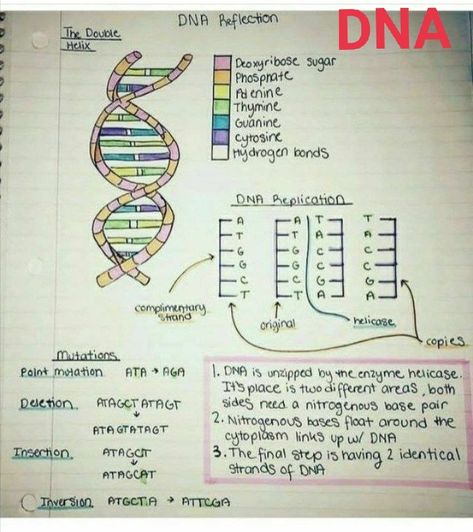 DNA Reflection
DNA
The Double
Helix
Deoxyribose sugar
Phosphate
Adenine
Thymine
Guanine
Cytosine
Hydrogen bonds
DNA Replication
A A T T
T T A A
G G C C
G G C C
C C G G
T T A A
complimentary
strand
original
helicase
copies
Mutations
Point mutation ATA → AGA
Deletion ATAGCTATAGT
ATAGTATAGT
Insertion ATAGCT
ATAGCAT
Inversion ATGCTA → ATTCGA
1. DNA is unzipped by the enzyme helicase.
It's place is two different areas, both
sides need a nitrogenous base pair
2. Nitrogenous bases float around the
cytoplasm links up w/ DNA
3. The final step is having 2 identical
strands of DNA